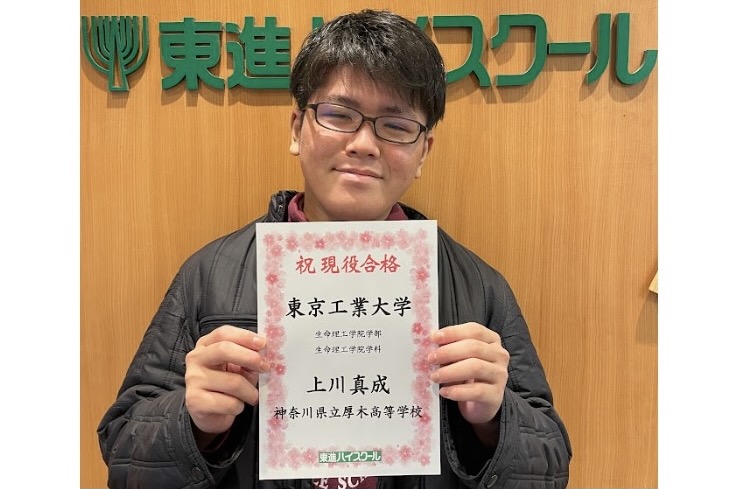 東進ハイスクール
祝 現役合格
東京工業大学
生命理工学院学部
生命理工学院学科
上川真成
神奈川県立厚木高等学校
東進ハイスクール